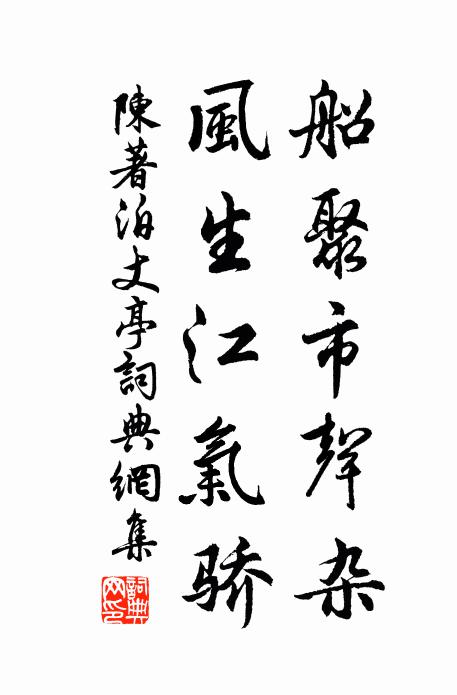 船聚市聲杂
風生江氣骄
陳著泊丈亭詞典網集
詞典網印